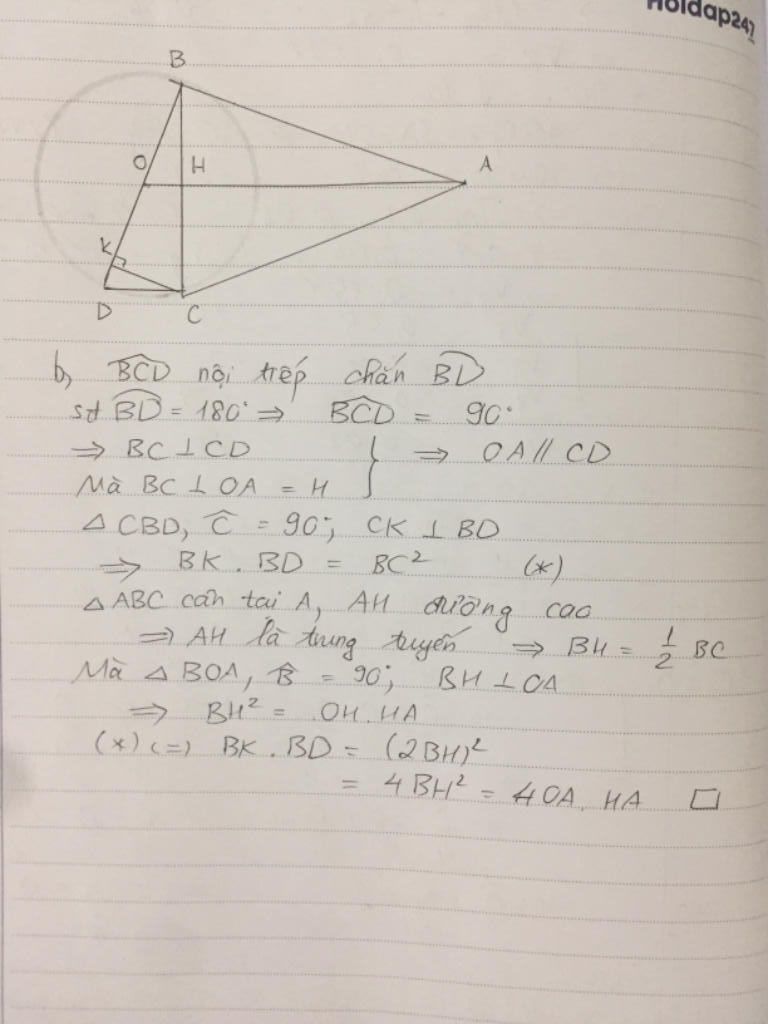 Hoidap247
B
O
H
A
K
D
C
b, $\widehat{BCD}$ nội tiếp chắn $\overset{\frown}{BD}$
sđ $\overset{\frown}{BD}$ = 180° ⇒ $\widehat{BCD}$ = 90°
⇒ BC ⊥ CD } ⇒ OA // CD
Mà BC ⊥ OA = H
△ CBD, $\widehat{C}$ = 90°, CK ⊥ BD
⇒ BK . BD = BC² (*)
△ ABC cân tại A, AH đường cao
⇒ AH là trung tuyến ⇒ BH = $\frac{1}{2}$ BC
Mà △ BOA, $\widehat{B}$ = 90°, BH ⊥ OA
⇒ BH² = OH . HA
(*) (=) BK . BD = (2BH)²
= 4BH² = 4 OA . HA □